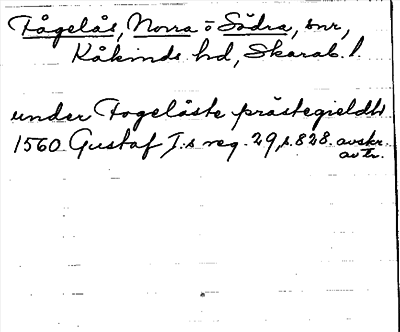 Fågelås, Norra o Södra, snr,
Kåkinds hd, Skarab. l.
under Fogelåste prästegieldht
1560 Gustaf I:s reg. 29, s. 828. avskr.
av tr.